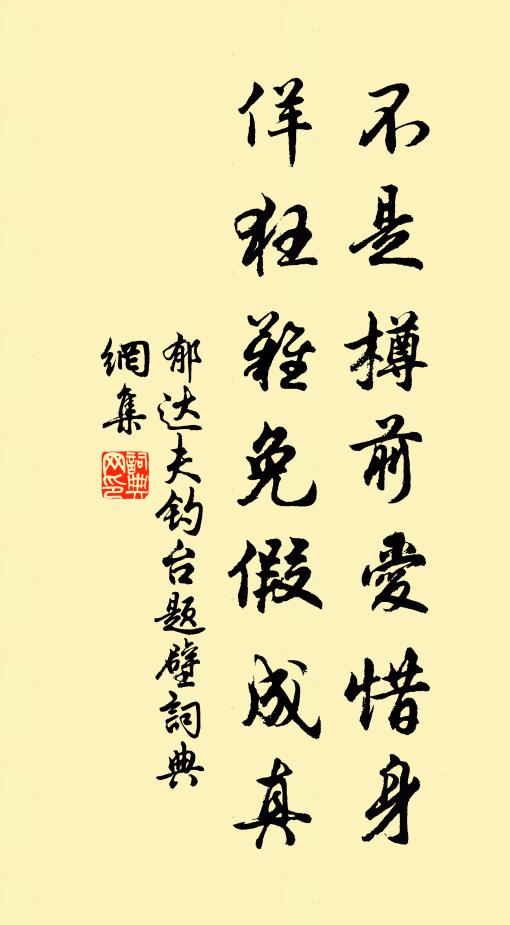 不是樽前愛惜身
佯狂難免假成真
郁达夫钓台题壁詞典
網集
詞典网印